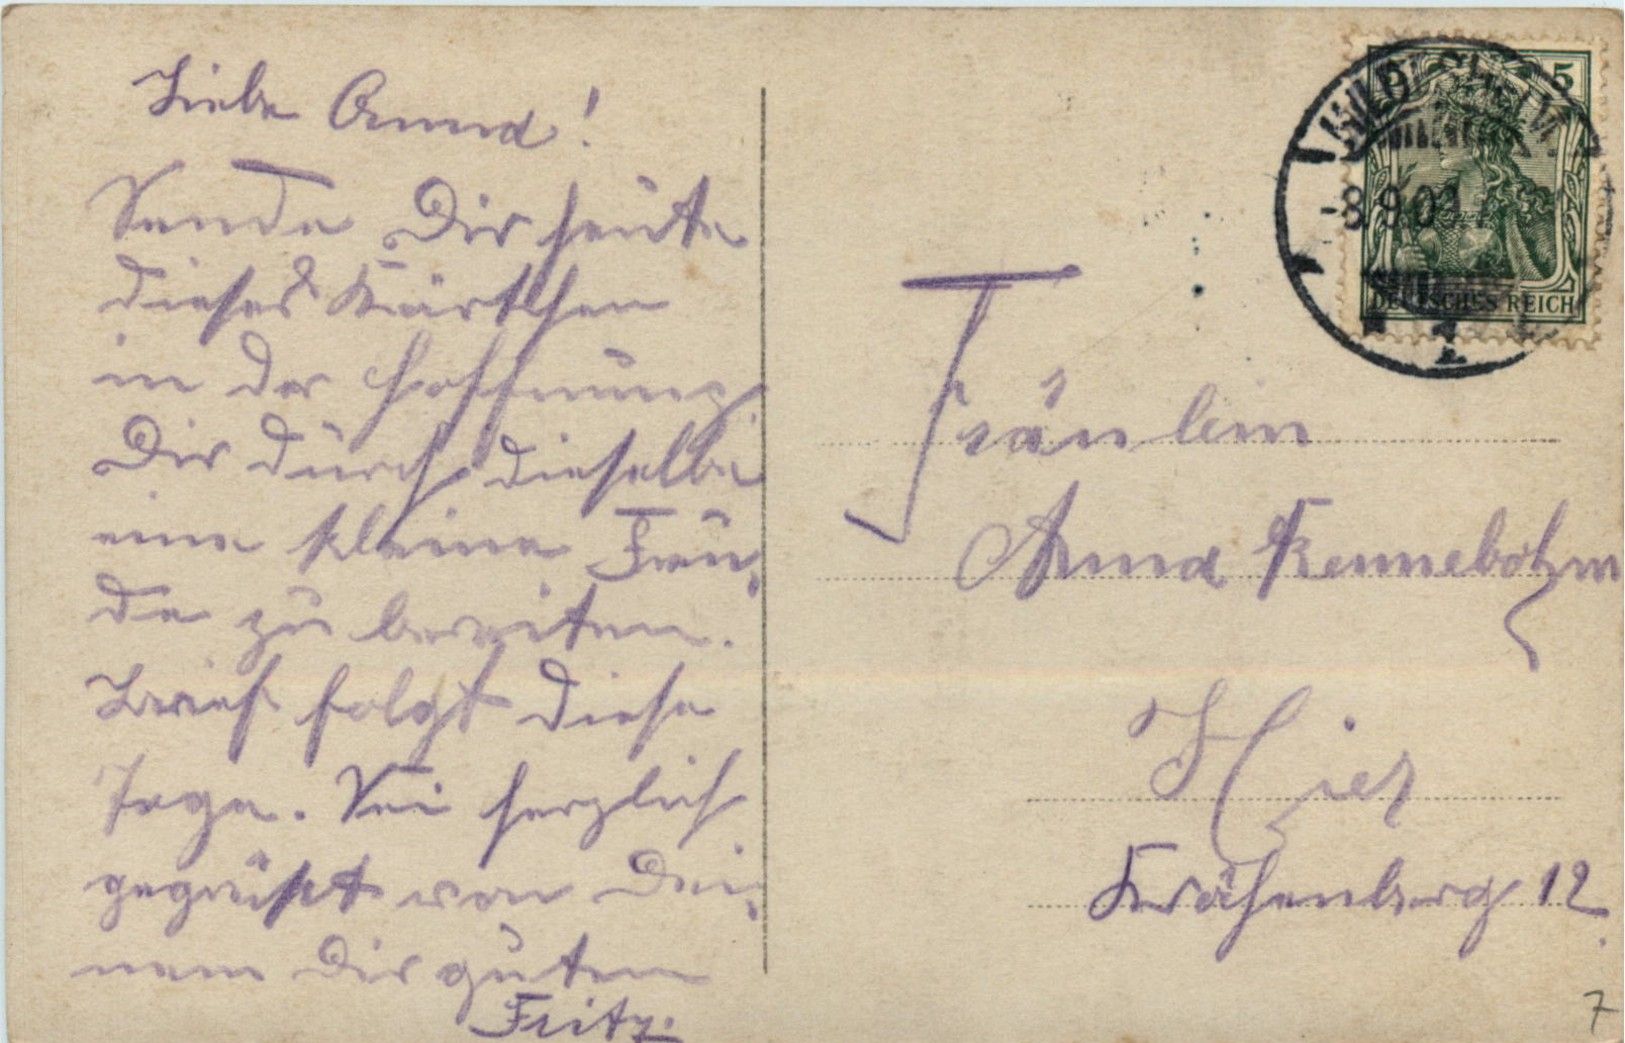 Liebe Anna!
Sende Dir heute
dieses Kärtchen
in der Hoffnung
Dir durch dieselbe
eine kleine Freu-
de zu bereiten.
Brief folgt diese
Tage. Sei herzlich
gegrüßt von Dei-
nem Dir guten
Fritz.
HILDESHEIM
-8.9.09.
5
DEUTSCHES REICH
Fräulein
Anna Rennebohm
Hier
Krähenberg 12.
7